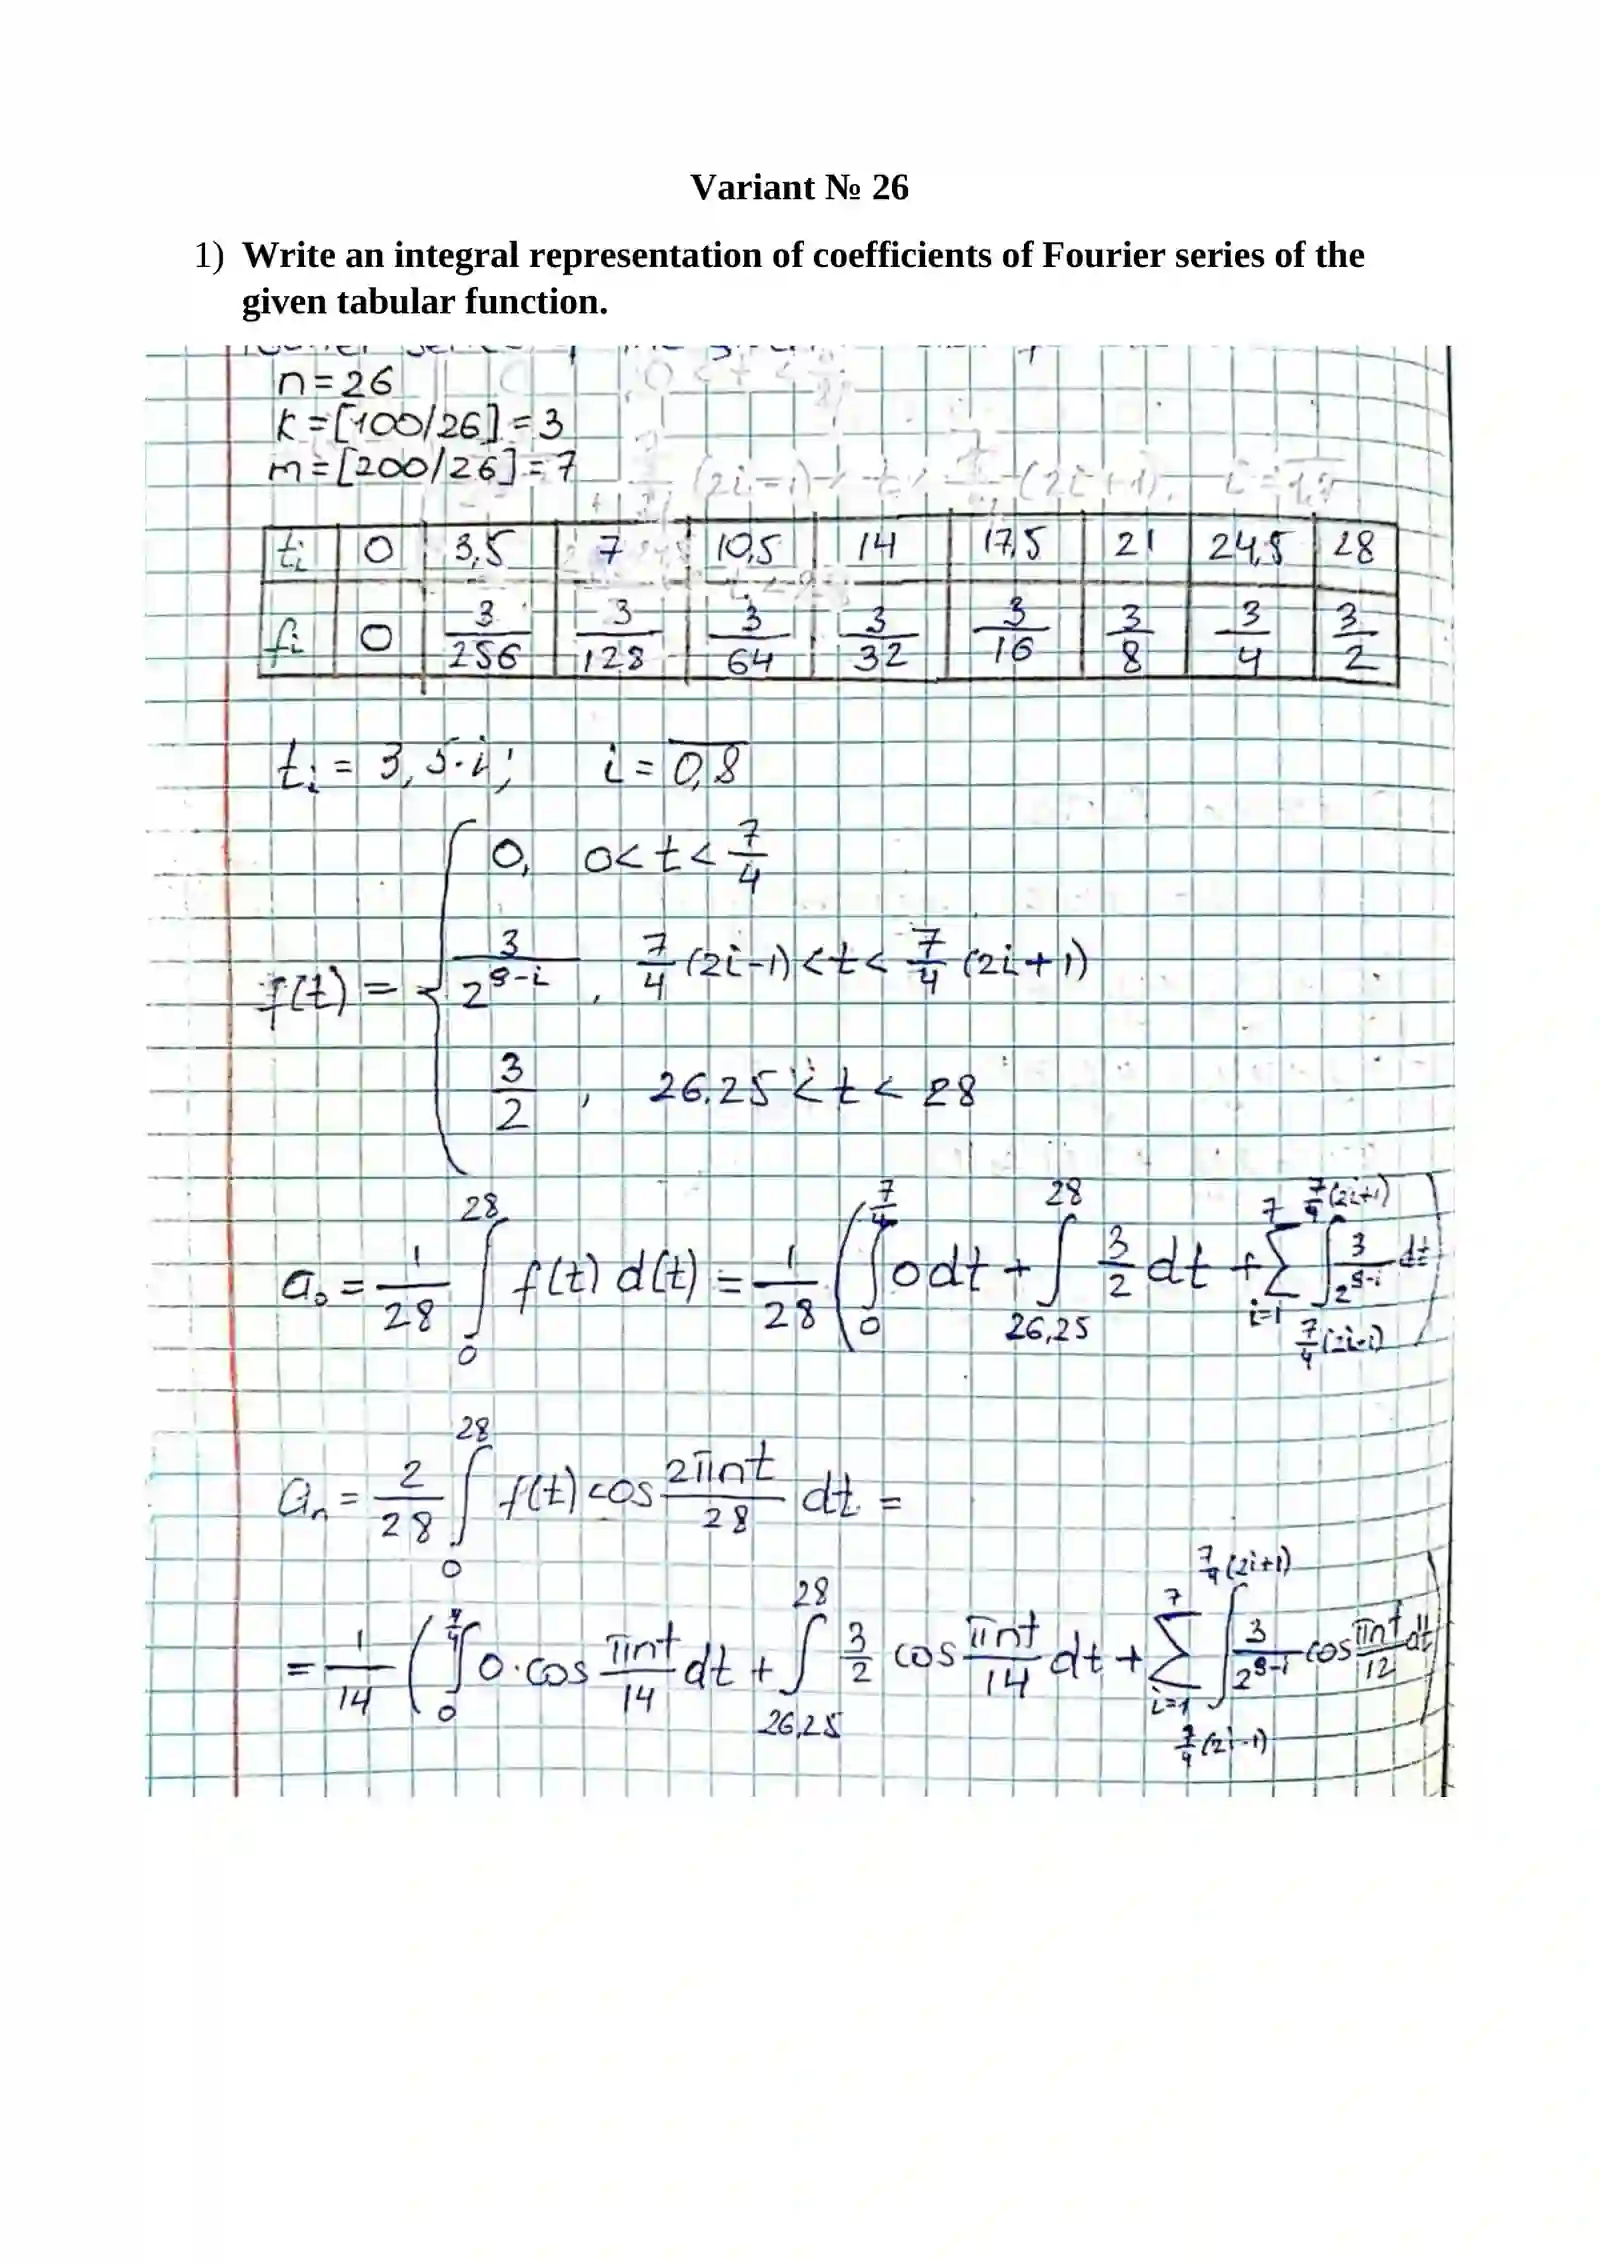 Variant № 26
1) Write an integral representation of coefficients of Fourier series of the
given tabular function.
n = 26
k = [100/26] = 3
m = [200/26] = 7
t_i | 0 | 3,5 | 7 | 10,5 | 14 | 17,5 | 21 | 24,5 | 28
f_i | 0 | 3/256 | 3/128 | 3/64 | 3/32 | 3/16 | 3/8 | 3/4 | 3/2
t_i = 3,5·i; i = 0,8
0, 0 < t < 7/4
f(t) = { 3/2^(9-i), 7/4 (2i-1) < t < 7/4 (2i+1)
3/2, 26.25 < t < 28
a_0 = 1/28 ∫_0^28 f(t) d(t) = 1/28 (∫_0^(7/4) 0 dt + ∫_26,25^28 3/2 dt + Σ_(i=1)^7 ∫_(7/4 (2i-1))^(7/4 (2i+1)) 3/2^(9-i) dt)
a_n = 2/28 ∫_0^28 f(t) cos 2πnt/28 dt =
= 1/14 (∫_0^(7/4) 0·cos πnt/14 dt + ∫_26,25^28 3/2 cos πnt/14 dt + Σ_(i=1)^7 ∫_(7/4 (2i-1))^(7/4 (2i+1)) 3/2^(9-i) cos πnt/12 dt)